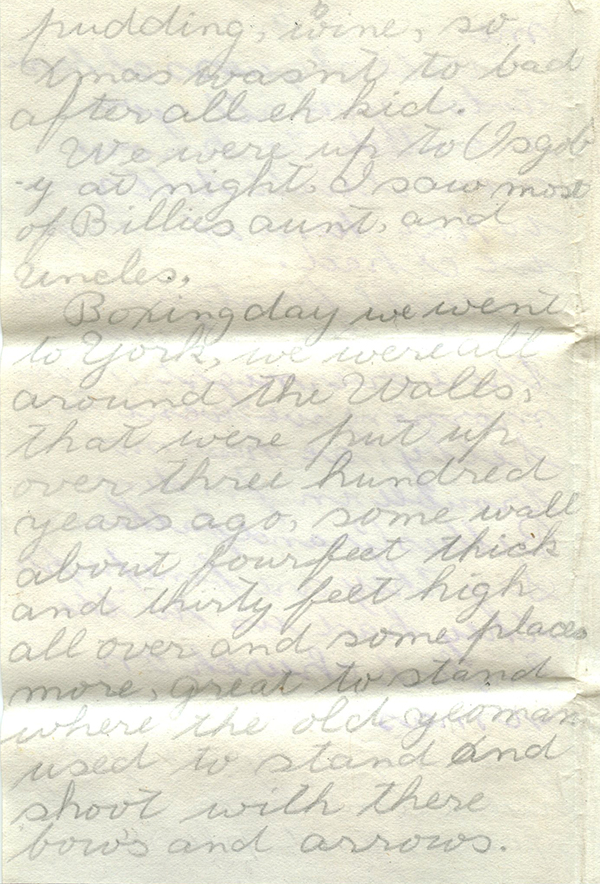 pudding, wine, so
Xmas wasn't to bad
after all eh kid.
We were up to Osgob
-y at night, I saw most
of Billies aunt, and
uncles.
Boxing day we went
to York, we were all
around the Walls,
that were put up
over three hundred
years ago, some wall
about four feet thick
and thirty feet high
all over and some places
more, great to stand
where the old yeoman
used to stand and
shoot with there
bow's and arrows.